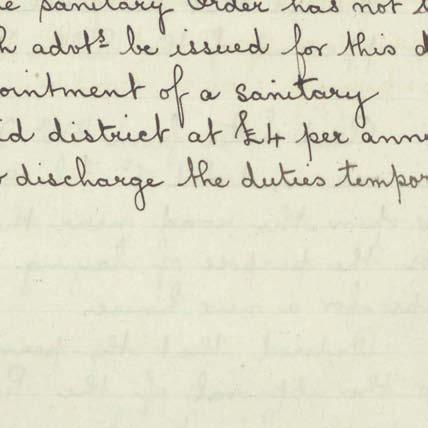 sanitary Order has not
advts be issued for this
ointment of a sanitary
id district at £4 per ann
discharge the duties tempor